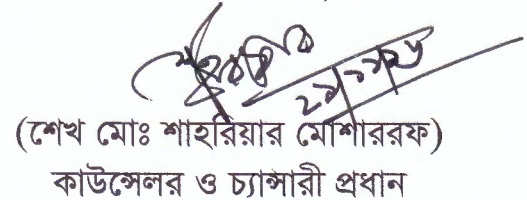 (শেখ মোঃ শাহরিয়ার মোশাররফ)
কাউন্সেলর ও চ্যান্সারী প্রধান